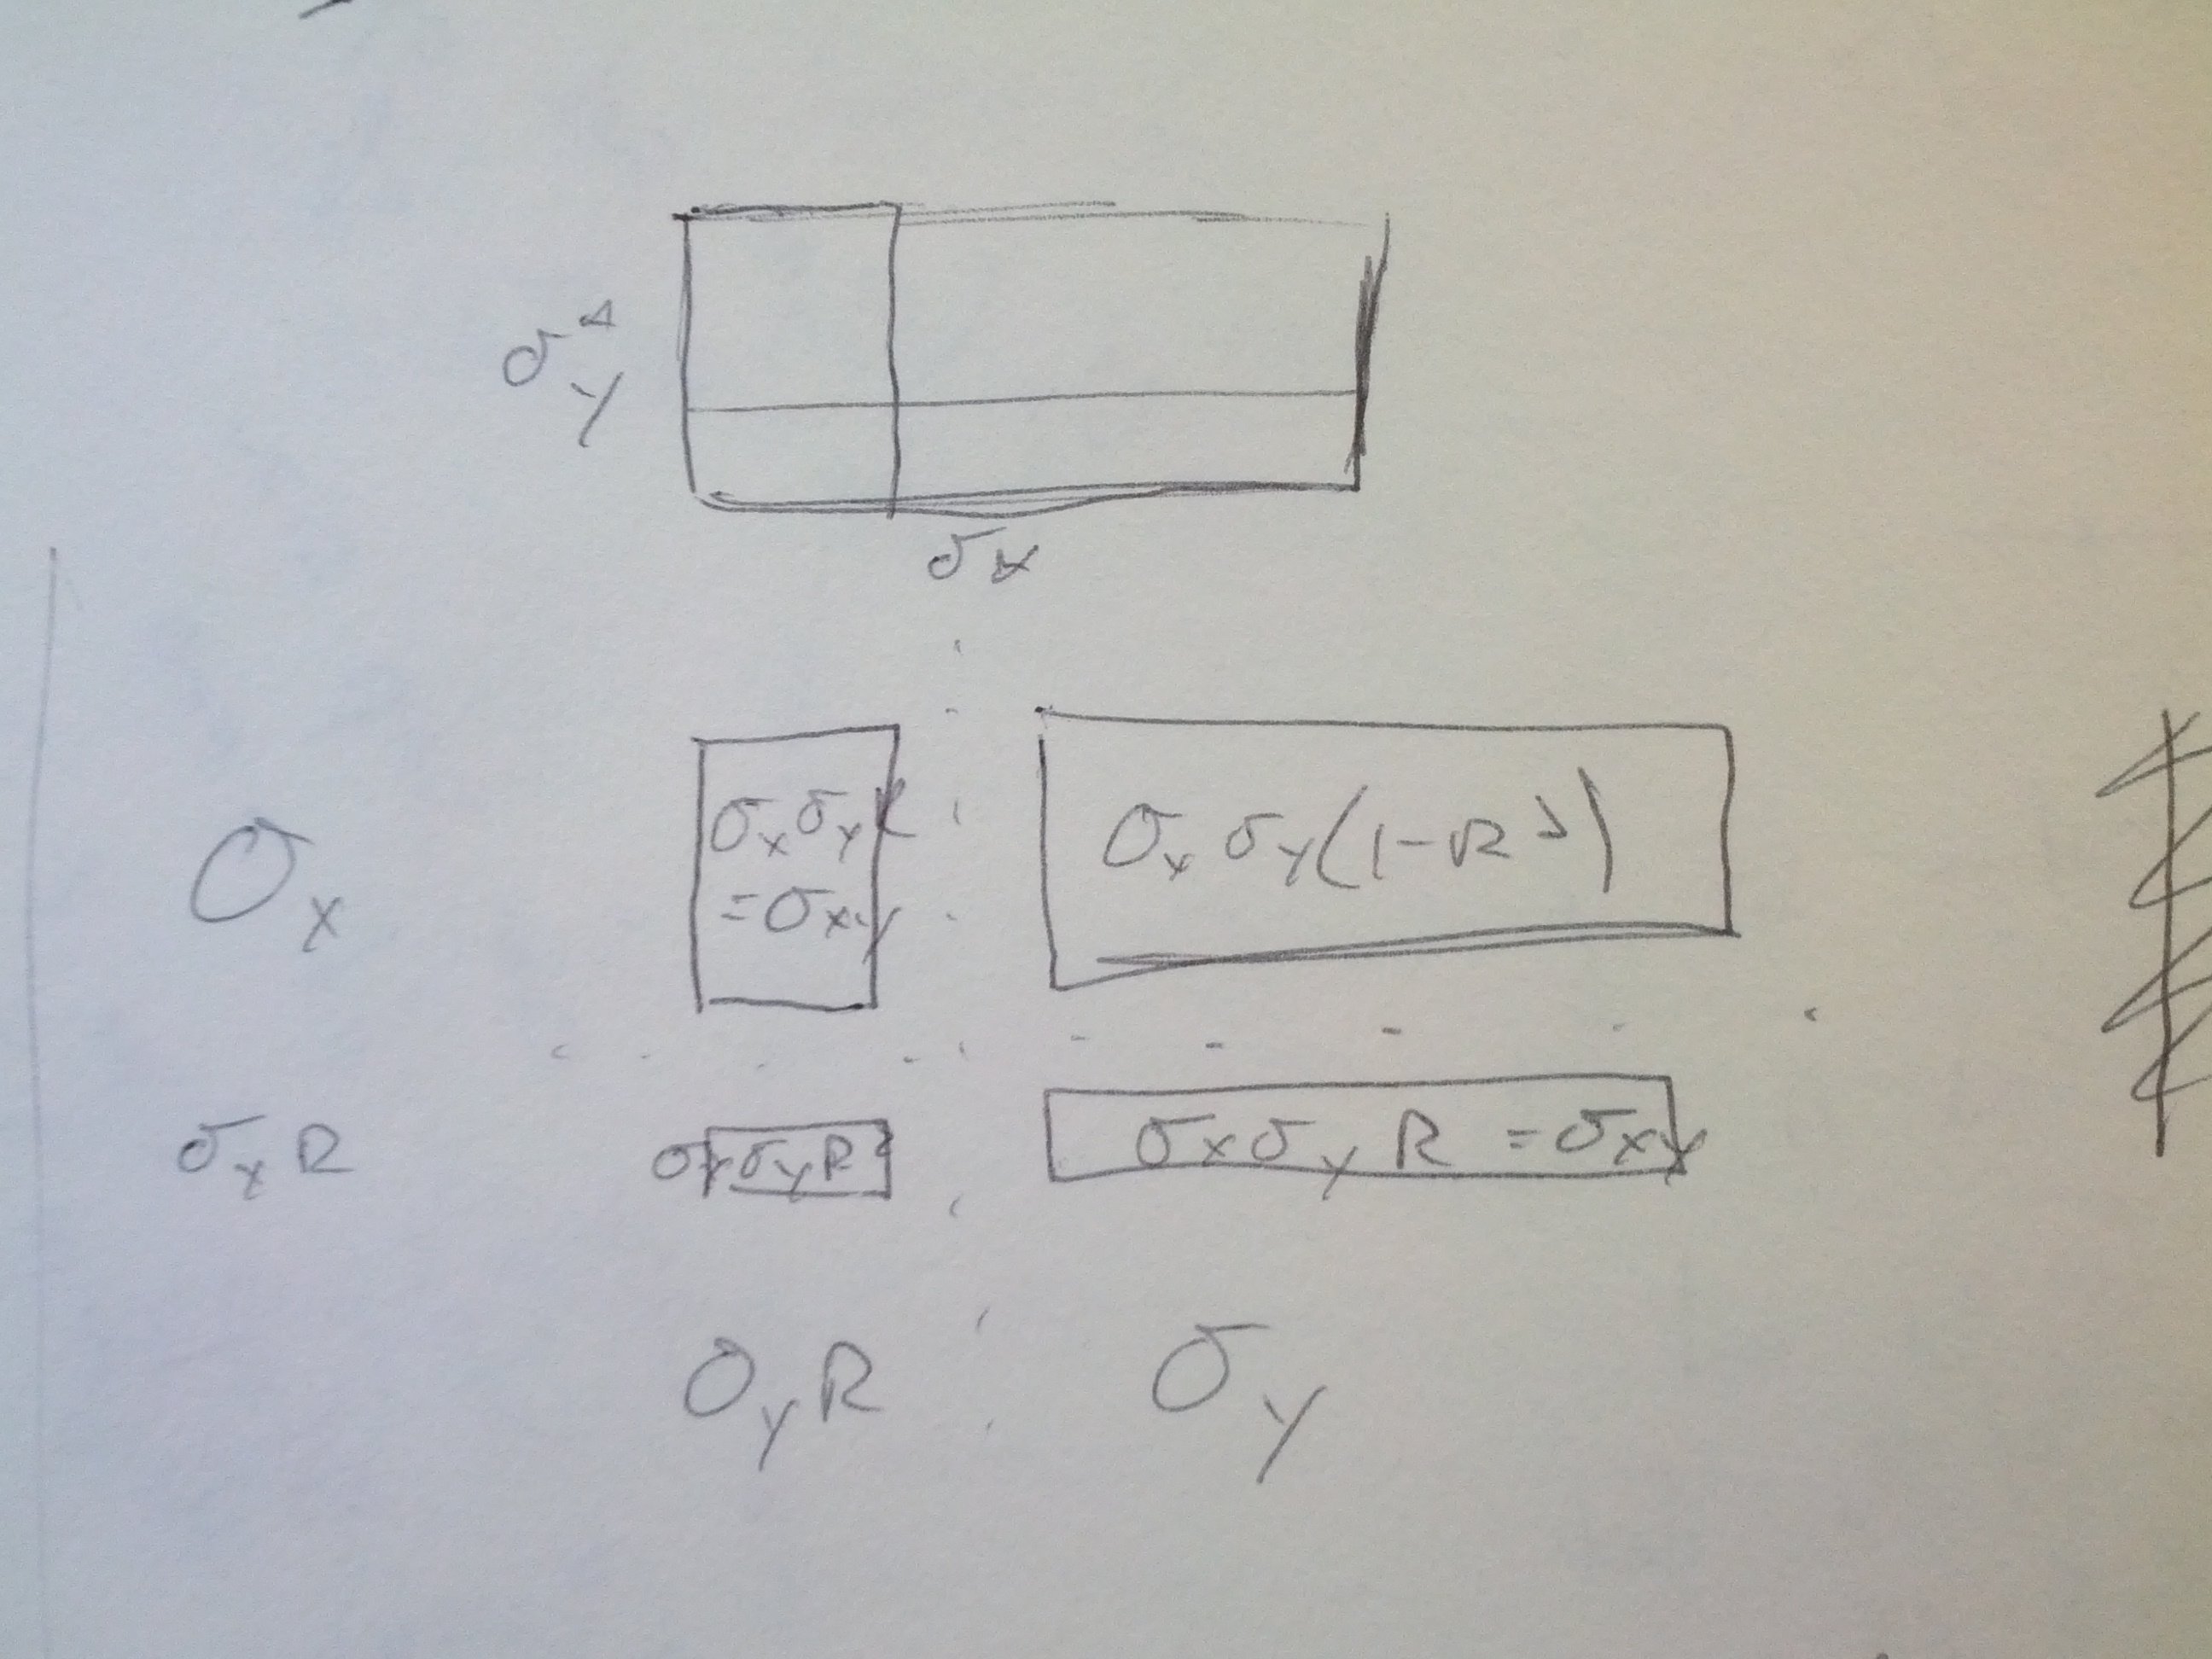 σy
σx
σxσyR
=σxy
σxσy(1-R²)
σx
σxR
σxσyR²
σxσyR =σxy
σyR
σy